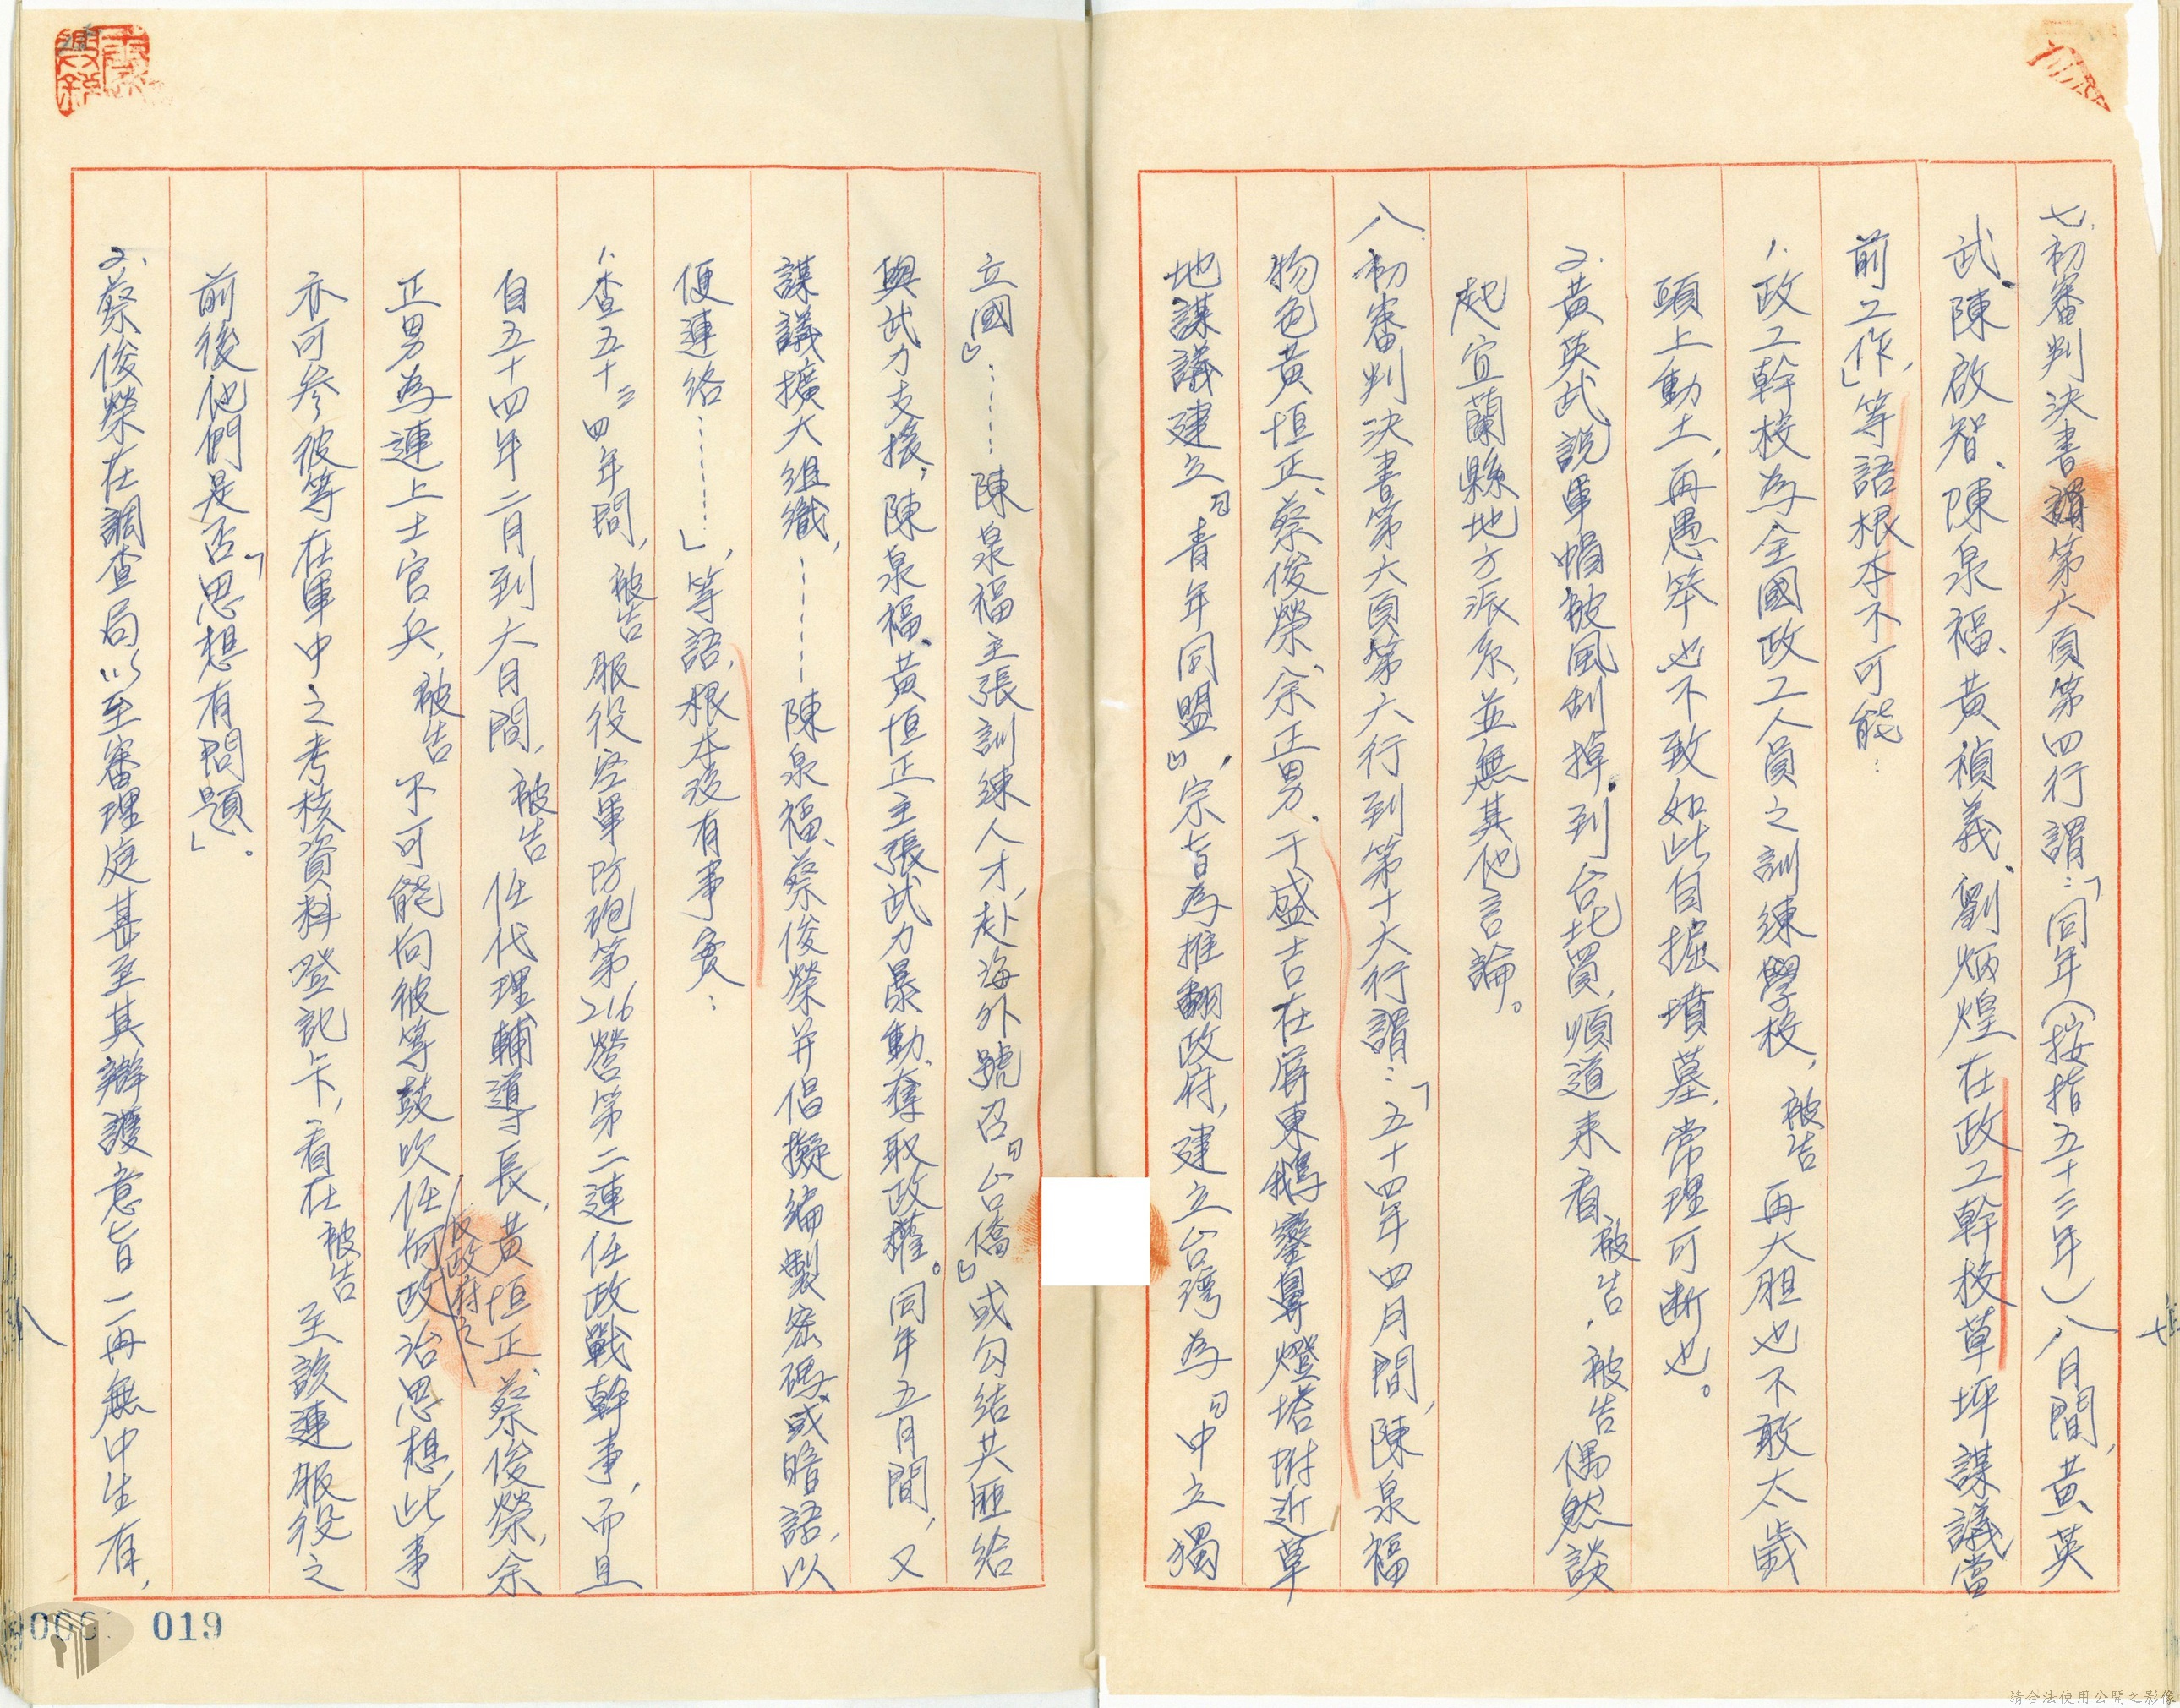 七、初審判決書謂第六頁第四行謂：「同年（按指五十三年）八月間，黃英
武、陳啟智、陳泉福、黃禎義、劉炳煌在政工幹校草坪謀議當
前工作，」等語根本不可能：
1. 政工幹校為全國政工人員之訓練學校，被告再大胆也不敢太歲
頭上動土，再愚笨也不致如此自掘墳墓，常理可断也。
2. 黃英武說軍帽被風刮掉，到台北買，順道来看被告，被告偶然談
起宜蘭縣地方派系，並無其他言論。
八、初審判決書第六頁第六行到第十六行謂：「五十四年四月間，陳泉福
物色黃恒正、蔡俊榮、余正男、于盛吉在屏東鵝鑾鼻燈塔附近草
地謀議建立『青年同盟』，宗旨為推翻政府，建立台湾為『中立獨
立國』……陳泉福主張訓練人才，赴海外號召『台僑』或勾结共匪给
與武力支援；陳泉福、黃恒正主張武力暴動，奪取政權。同年五月間，又
謀議擴大組織，………陳泉福、蔡俊榮并倡擬編製密碼或暗語，以
便連络………」，等語，根本沒有事实：
1. 查五十三四年間，被告服役空軍防砲第216營第二連任政戰幹事，而且
自五十四年二月到六月間，被告任代理輔導長，黃恒正、蔡俊榮，余
正男為連上士官兵，被告不可能向彼等鼓吹任何政治思想，此事
反政府之
亦可参彼等在軍中之考核資料登記卡，看在被告至該連服役之
前後他們是否「思想有問題」。
2. 蔡俊榮在調查局以至審理庭甚至其辯護意旨一再無中生有，
019
請合法使用公開之影像